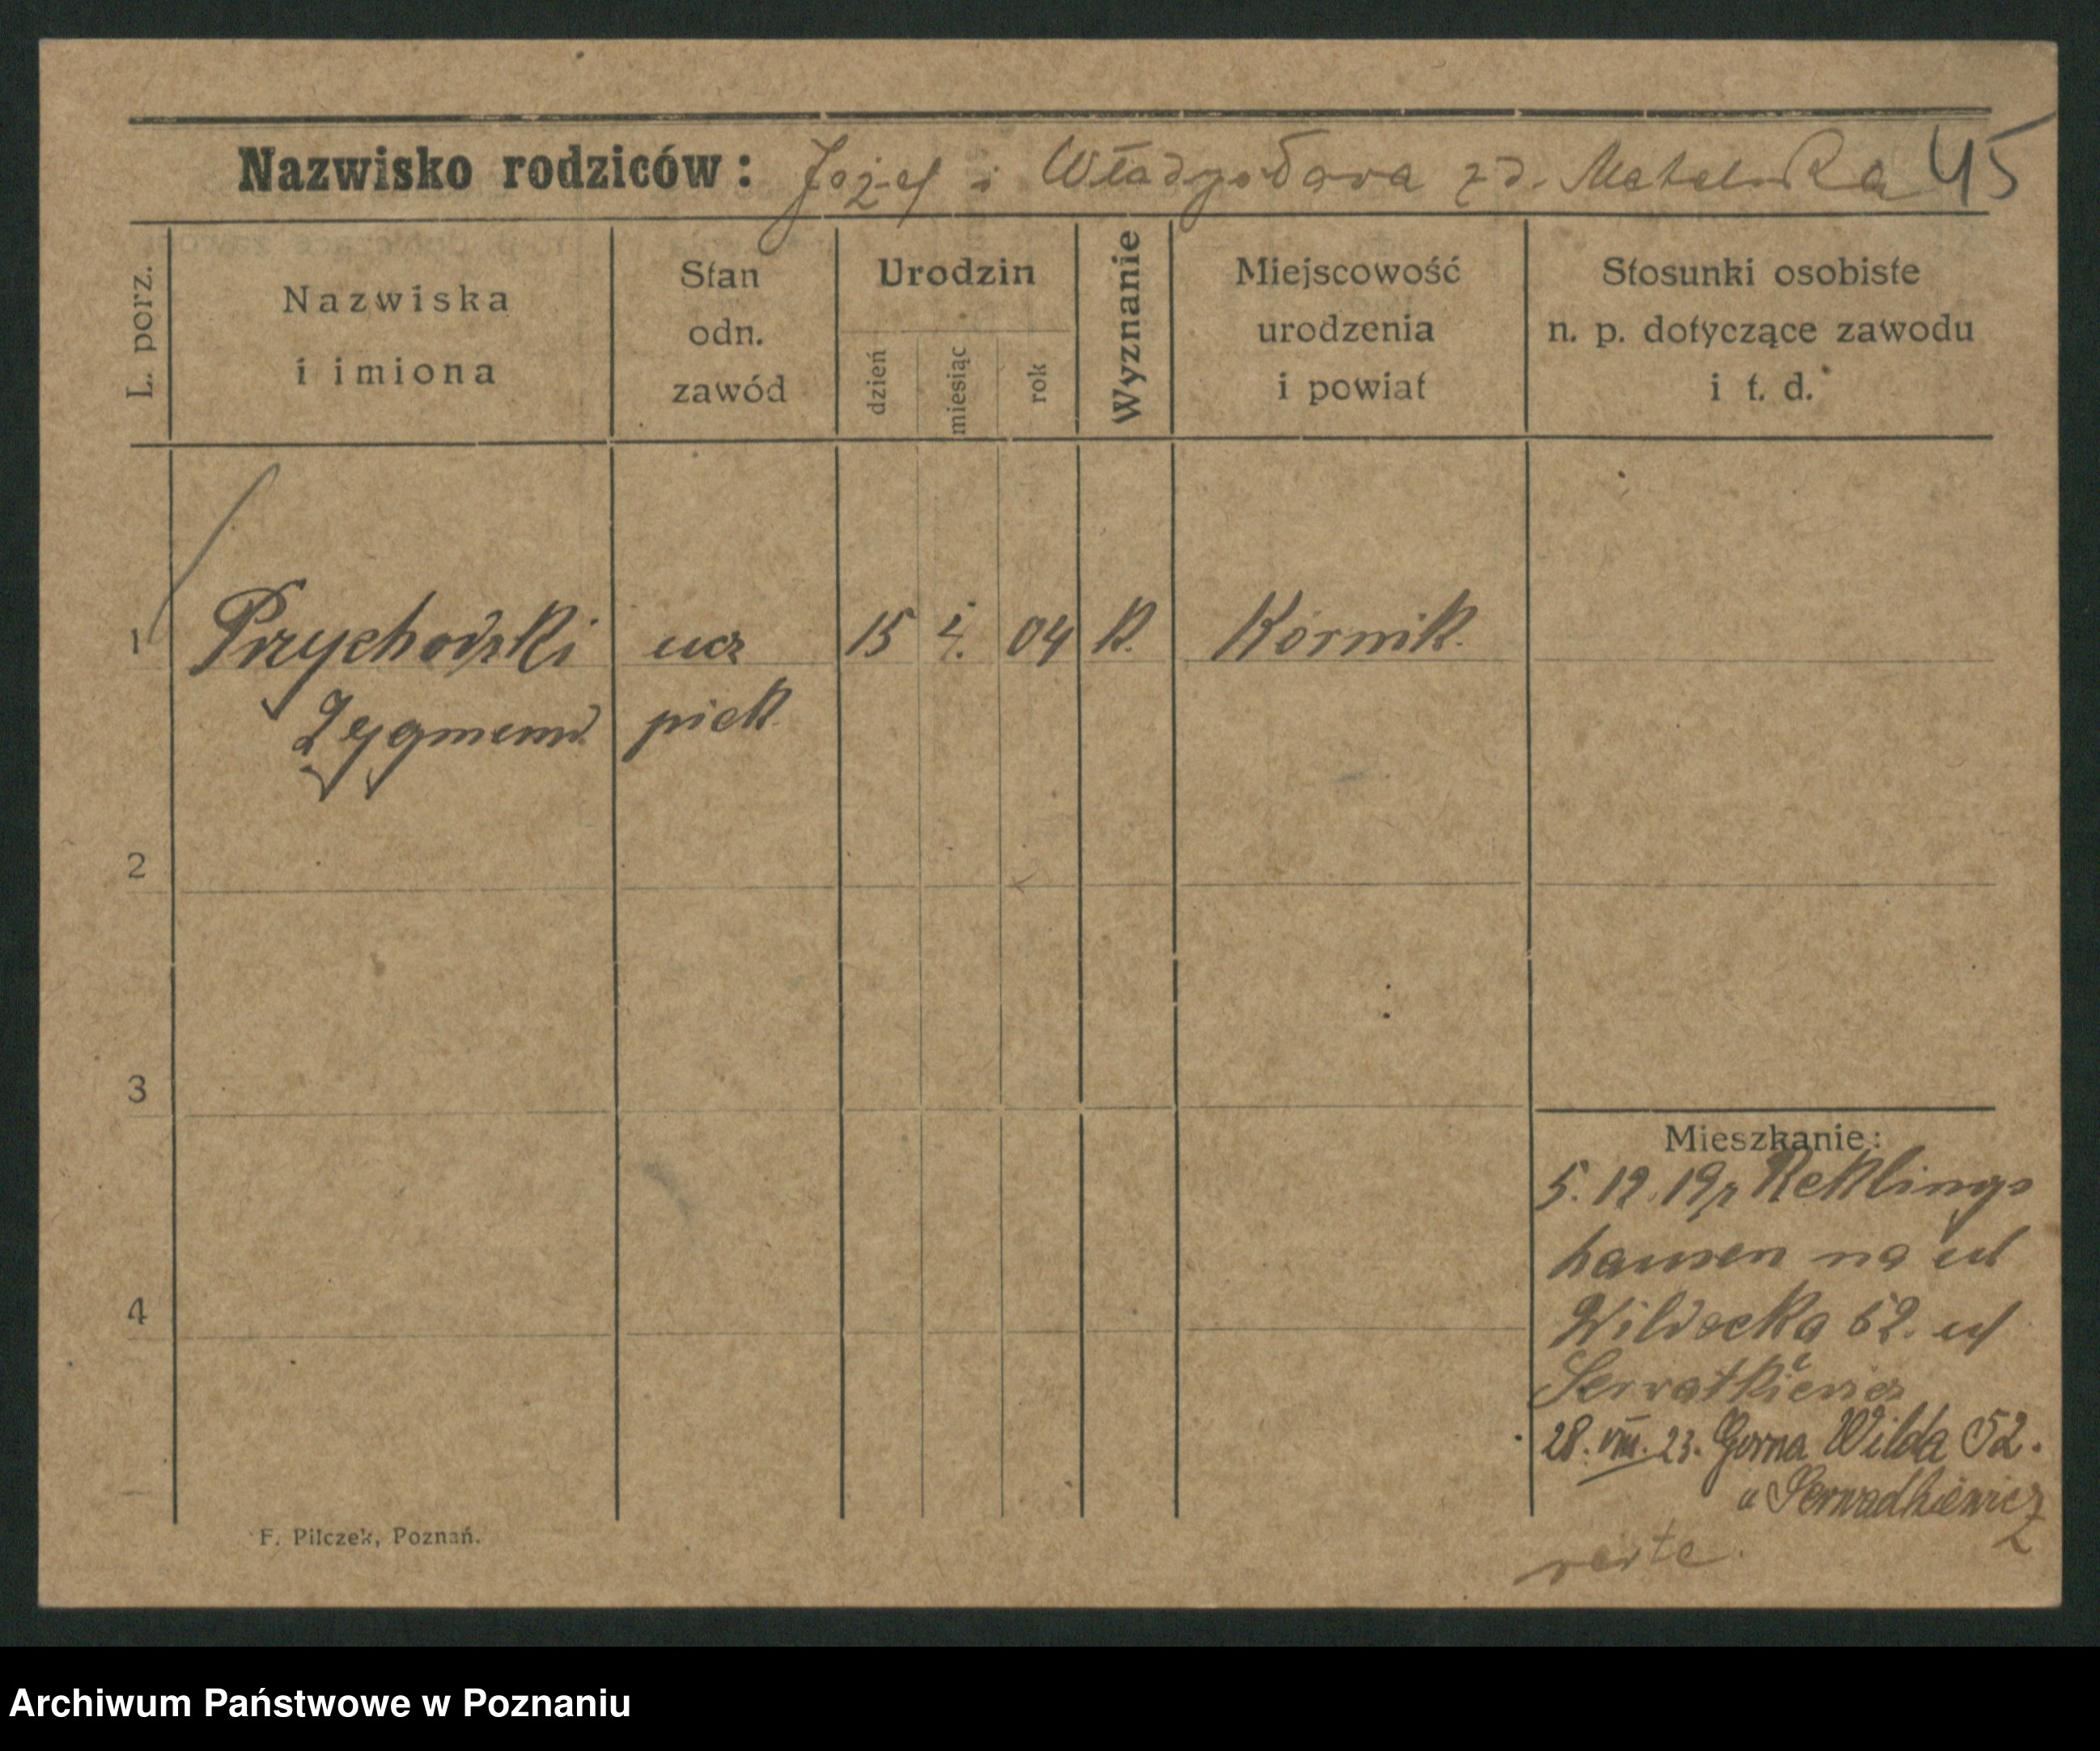 Nazwisko rodziców: Józef i Władysława zd. 45
L. porz.
Nazwiska
i imiona
Stan
odn.
zawód
Urodzin
dzień
miesiąc
rok
Wyznanie
Miejscowość
urodzenia
i powiat
Stosunki osobiste
n. p. dotyczące zawodu
i t. d.
1 Przychodzki ucz 15 04 K. Kórnik.
Zygmund piek.
2
3
4
Mieszkanie:
5. 12. 19 Reklings
hausen na ul
Wildecka 52. u
Serwatkiewicz
28. VIII. 23. Gorna Wilda 52.
u Serwadkiewicz
F. Pilczek, Poznań.
Archiwum Państwowe w Poznaniu